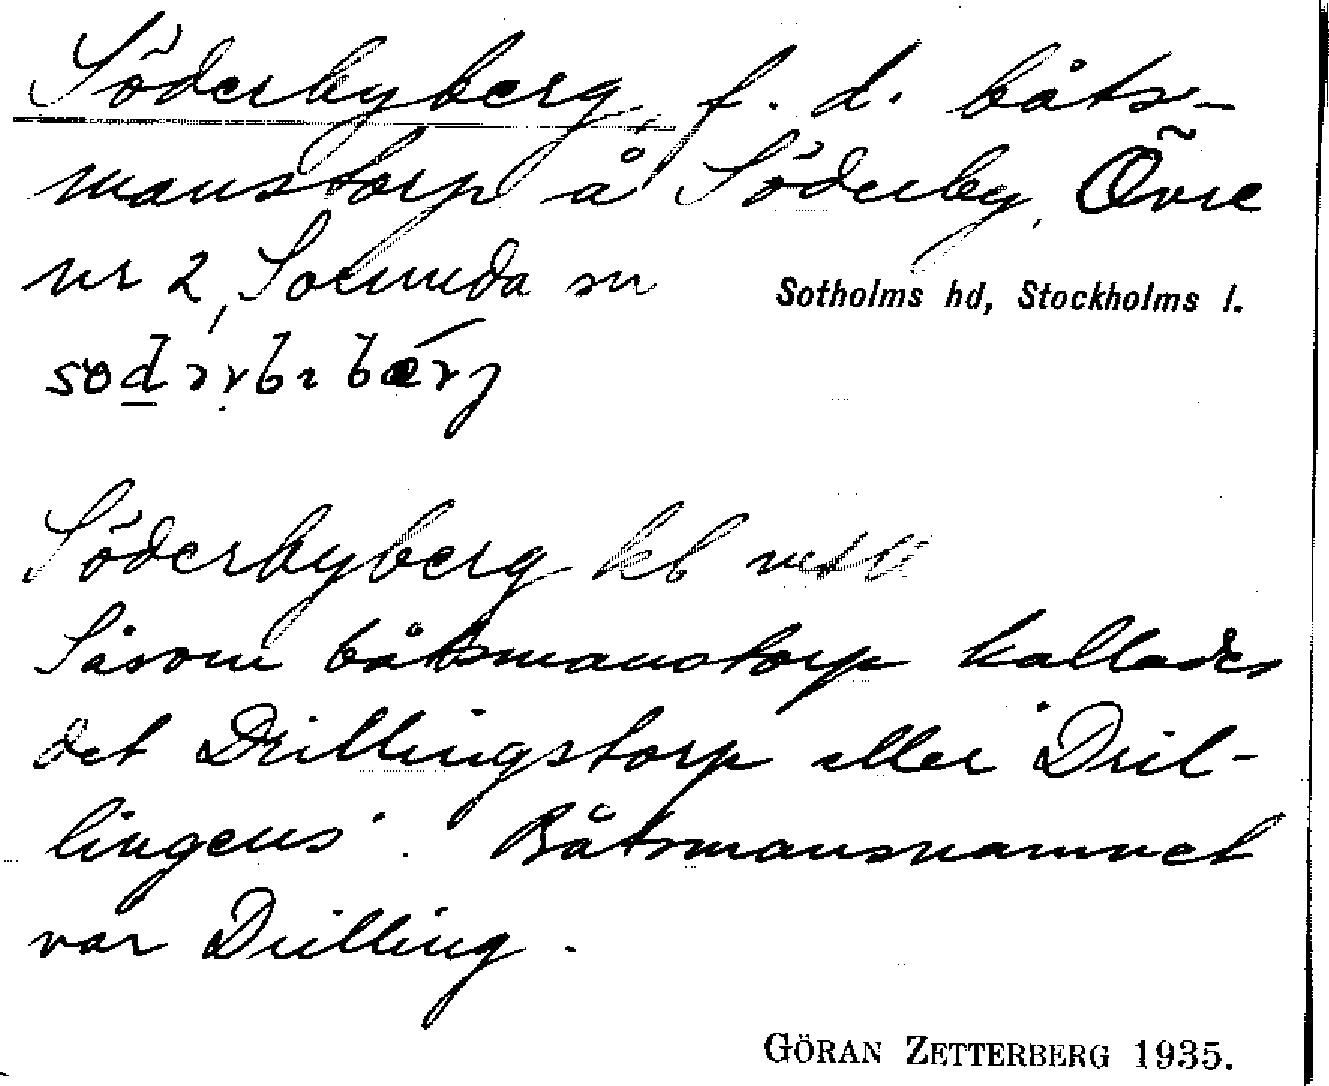 Söderbyberg, f. d. båts-
manstorp å Söderby, Övre
nr 2, Sorunda sn Sotholms hd, Stockholms l.
Söderbyberg kb
Såsom båtsmanstorp kallades
det Drillingstorp eller "Dril-
lingens". Båtsmansnamnet
var Drilling.
GÖRAN ZETTERBERG 1935.